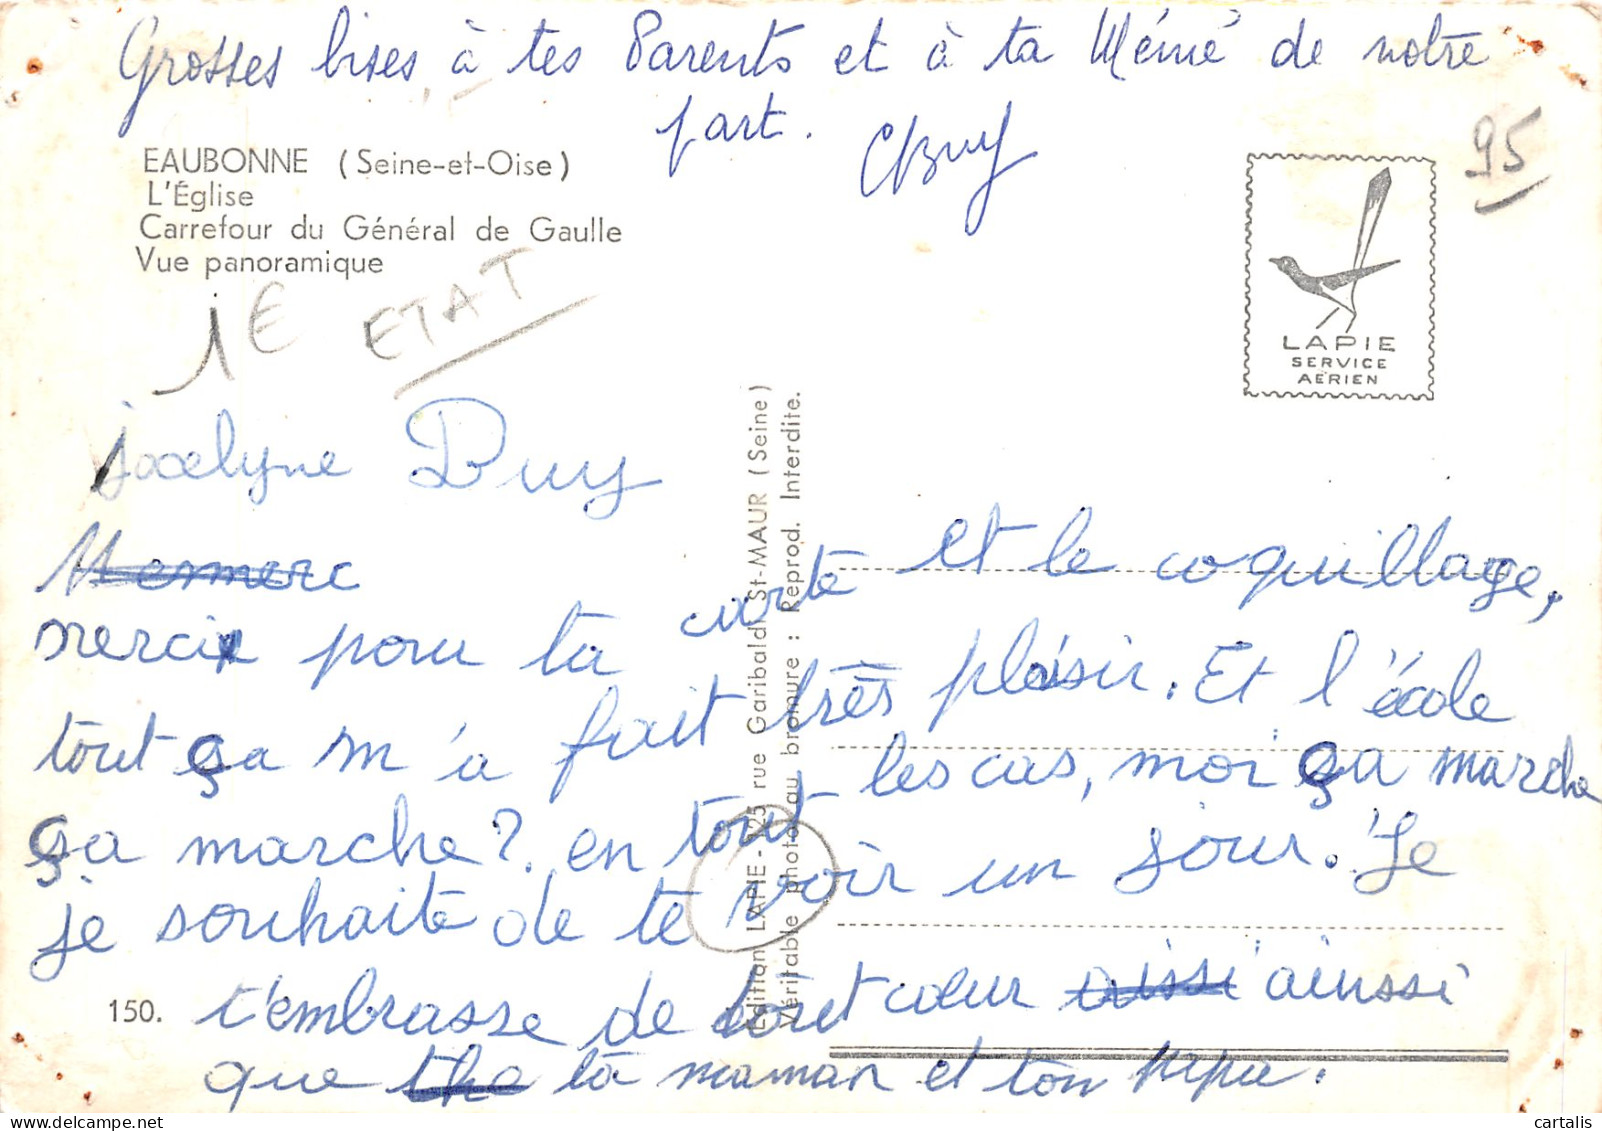 Grosses bises à tes Parents et à ta Mémé de notre
part.
EAUBONNE (Seine-et-Oise)
L'Église
Carrefour du Général de Gaulle
Vue panoramique
95
LAPIE
SERVICE
AÉRIEN
1€ ETAT
Jocelyne Buy
merci pour ta carte et le coquillage,
tout ça m'a fait très plaisir. Et l'école
ça marche? en tout les cas, moi ça marche
je souhaite de te voir un jour. Je
t'embrasse de tout cœur ainssi
que ta maman et ton papa.
150.
Edition LAPIE - 125 rue Garibaldi St-MAUR (Seine)
Véritable photo au bromure : Reprod. Interdite.
cartalis
delcampe.net